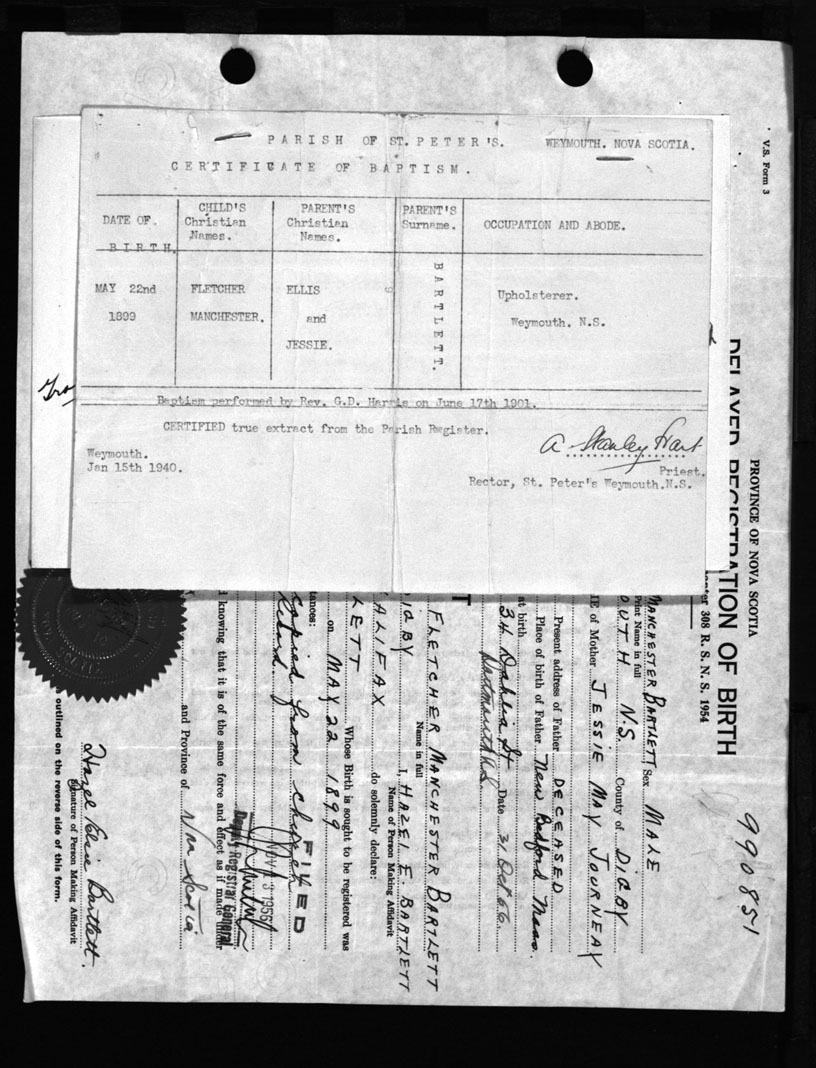 PARISH OF ST. PETER'S. WEYMOUTH. NOVA SCOTIA.
CERTIFICATE OF BAPTISM.
DATE OF BIRTH.
CHILD'S Christian Names.
PARENT'S Christian Names.
PARENT'S Surname.
OCCUPATION AND ABODE.
MAY 22nd 1899
FLETCHER MANCHESTER.
ELLIS and JESSIE.
BARTLETT.
Upholsterer.
Weymouth. N.S.
Baptism performed by Rev. G.D. Harris on June 17th 1901.
CERTIFIED true extract from the Parish Register.
Weymouth.
Jan 15th 1940.
A Stanley Hart
Priest.
Rector, St. Peter's Weymouth.N.S.
V.S. Form 3
PROVINCE OF NOVA SCOTIA
DELAYED REGISTRATION OF BIRTH
308 R. S. N. S. 1954
990851
MANCHESTER BARTLETT Sex MALE
Print Name in full
OUTH N.S. County of DIGBY
of Mother JESSIE MAY JOURNEAY
Present address of Father DECEASED
Place of birth of Father New Bedford Mass.
at birth
34 Dahlia St Date 31 Oct
Dartmouth N.S.
FLETCHER MANCHESTER BARTLETT
Name in full
I, HAZEL E. BARTLETT
Name of Person Making Affidavit
IGBY
ALIFAX do solemnly declare:
LETT Whose Birth is sought to be registered was
on MAY 22 1899
tances:
copied from church
record.
FILED
NOV 13 1956
Deputy Registrar General
knowing that it is of the same force and effect as if made under
and Province of Nova Scotia
Hazel Elsie Bartlett
Signature of Person Making Affidavit
outlined on the reverse side of this form.